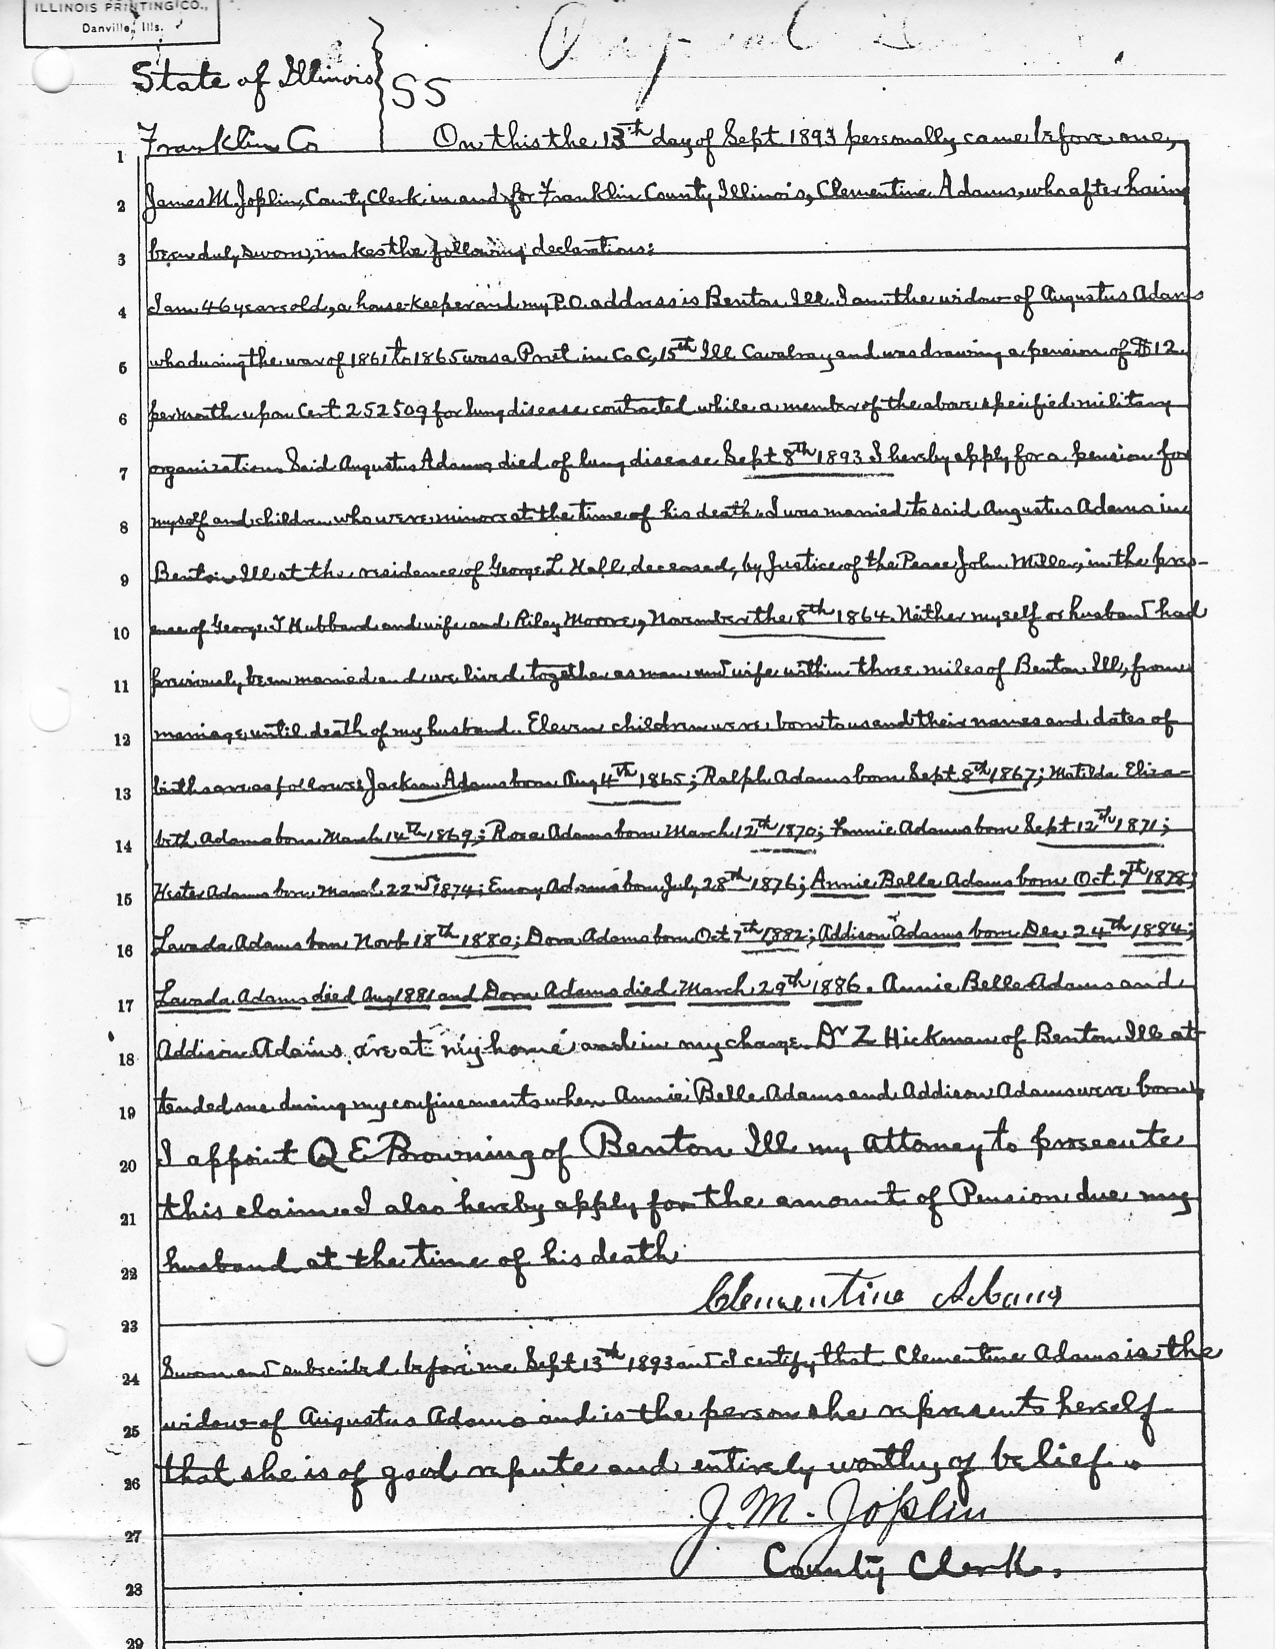 ILLINOIS PRINTING CO.,
Danville, Ills.
Original
State of Illinois } SS
Franklin Co
On this the 13th day of Sept 1893 personally came before me,
1
James M. Joplin, County Clerk in and for Franklin County Illinois, Clementine Adams, who after having
2
been duly sworn, makes the following declarations:
3
I am 46 years old, a house-keeper and my P.O. address is Benton Ill. I am the widow of Augustus Adams
4
who during the war of 1861 to 1865 was a Pvt in Co C, 15th Ill Cavalray and was drawing a pension of $12
5
per month upon Cert 252509 for lung disease contracted while a member of the above specified military
6
organization. Said Augustus Adams died of lung disease Sept 8th 1893. I hereby apply for a pension for
7
myself and children who were minors at the time of his death. I was married to said Augustus Adams in
8
Benton Ill at the residence of George L Hall, deceased, by Justice of the Peace John Miller, in the pres-
9
ence of George T Hubbard and wife and Riley Moore, November the 8th 1864. Neither myself or husband had
10
previously been married and we lived together as man and wife within three miles of Benton Ill, from
11
marriage until death of my husband. Eleven children were born to us and their names and dates of
12
births are as follows: Jackson Adams born Aug 4th 1865; Ralph Adams born Sept 8th 1867; Matilda Eliza-
13
beth Adams born March 14th 1869; Rosa Adams born March 12th 1870; Fannie Adams born Sept 12th 1871;
14
Hester Adams born March 22nd 1874; Emory Adams born July 28th 1876; Annie Belle Adams born Oct 7th 1878;
15
Lavada Adams born Novb 18th 1880; Dora Adams born Oct 7th 1882; Addison Adams born Dec 24th 1884;
16
Lavada Adams died Aug 1881 and Dora Adams died March 29th 1886. Annie Belle Adams and
17
Addison Adams are at my home and in my charge. Dr Z Hickman of Benton Ill at-
18
tended me during my confinements when Annie Belle Adams and Addison Adams were born
19
I appoint Q E Browning of Benton Ill my attorney to prosecute
20
this claim. I also hereby apply for the amount of Pension due my
21
husband at the time of his death
22
Clementine Adams
23
Sworn and subscribed before me Sept 13th 1893 and I certify that Clementine Adams is the
24
widow of Augustus Adams and is the person she represents herself
25
that she is of good repute and entirely worthy of belief.
26
J. M. Joplin
27
County Clerk.
28
29